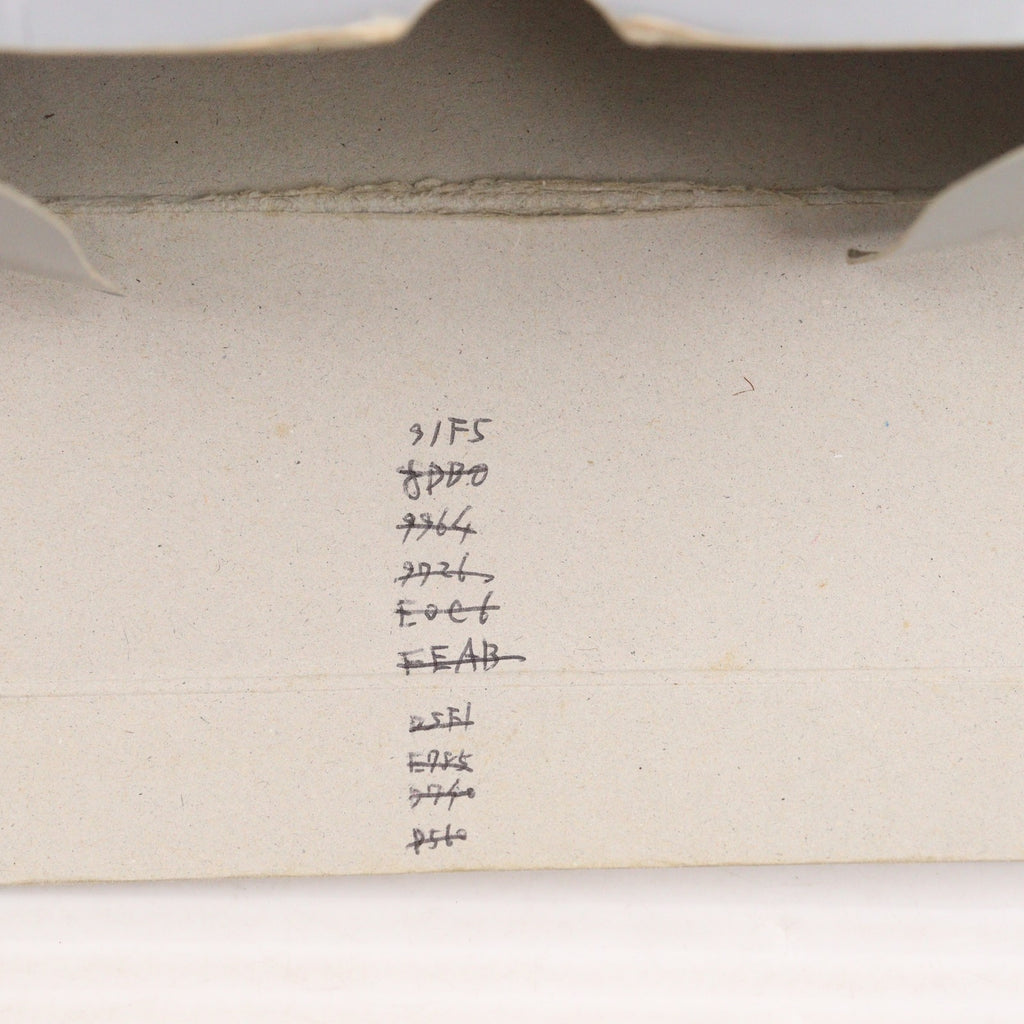 91F5
8DB0
9964
9726
E0C6
FEAB
D5F1
E785
9740
D560